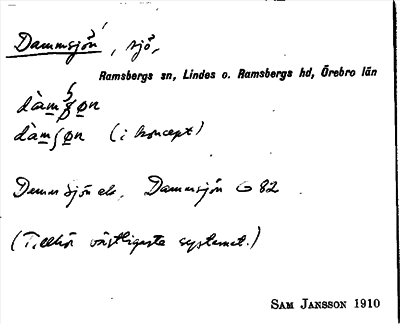 Dammsjön, sjö,
Ramsbergs sn, Lindes o. Ramsbergs hd, Örebro län
dàmʃøn
dàmʃøn (i koncept)
Dammsjön el. Dammsjön G 82
(Tillhör västligaste systemet.)
SAM JANSSON 1910